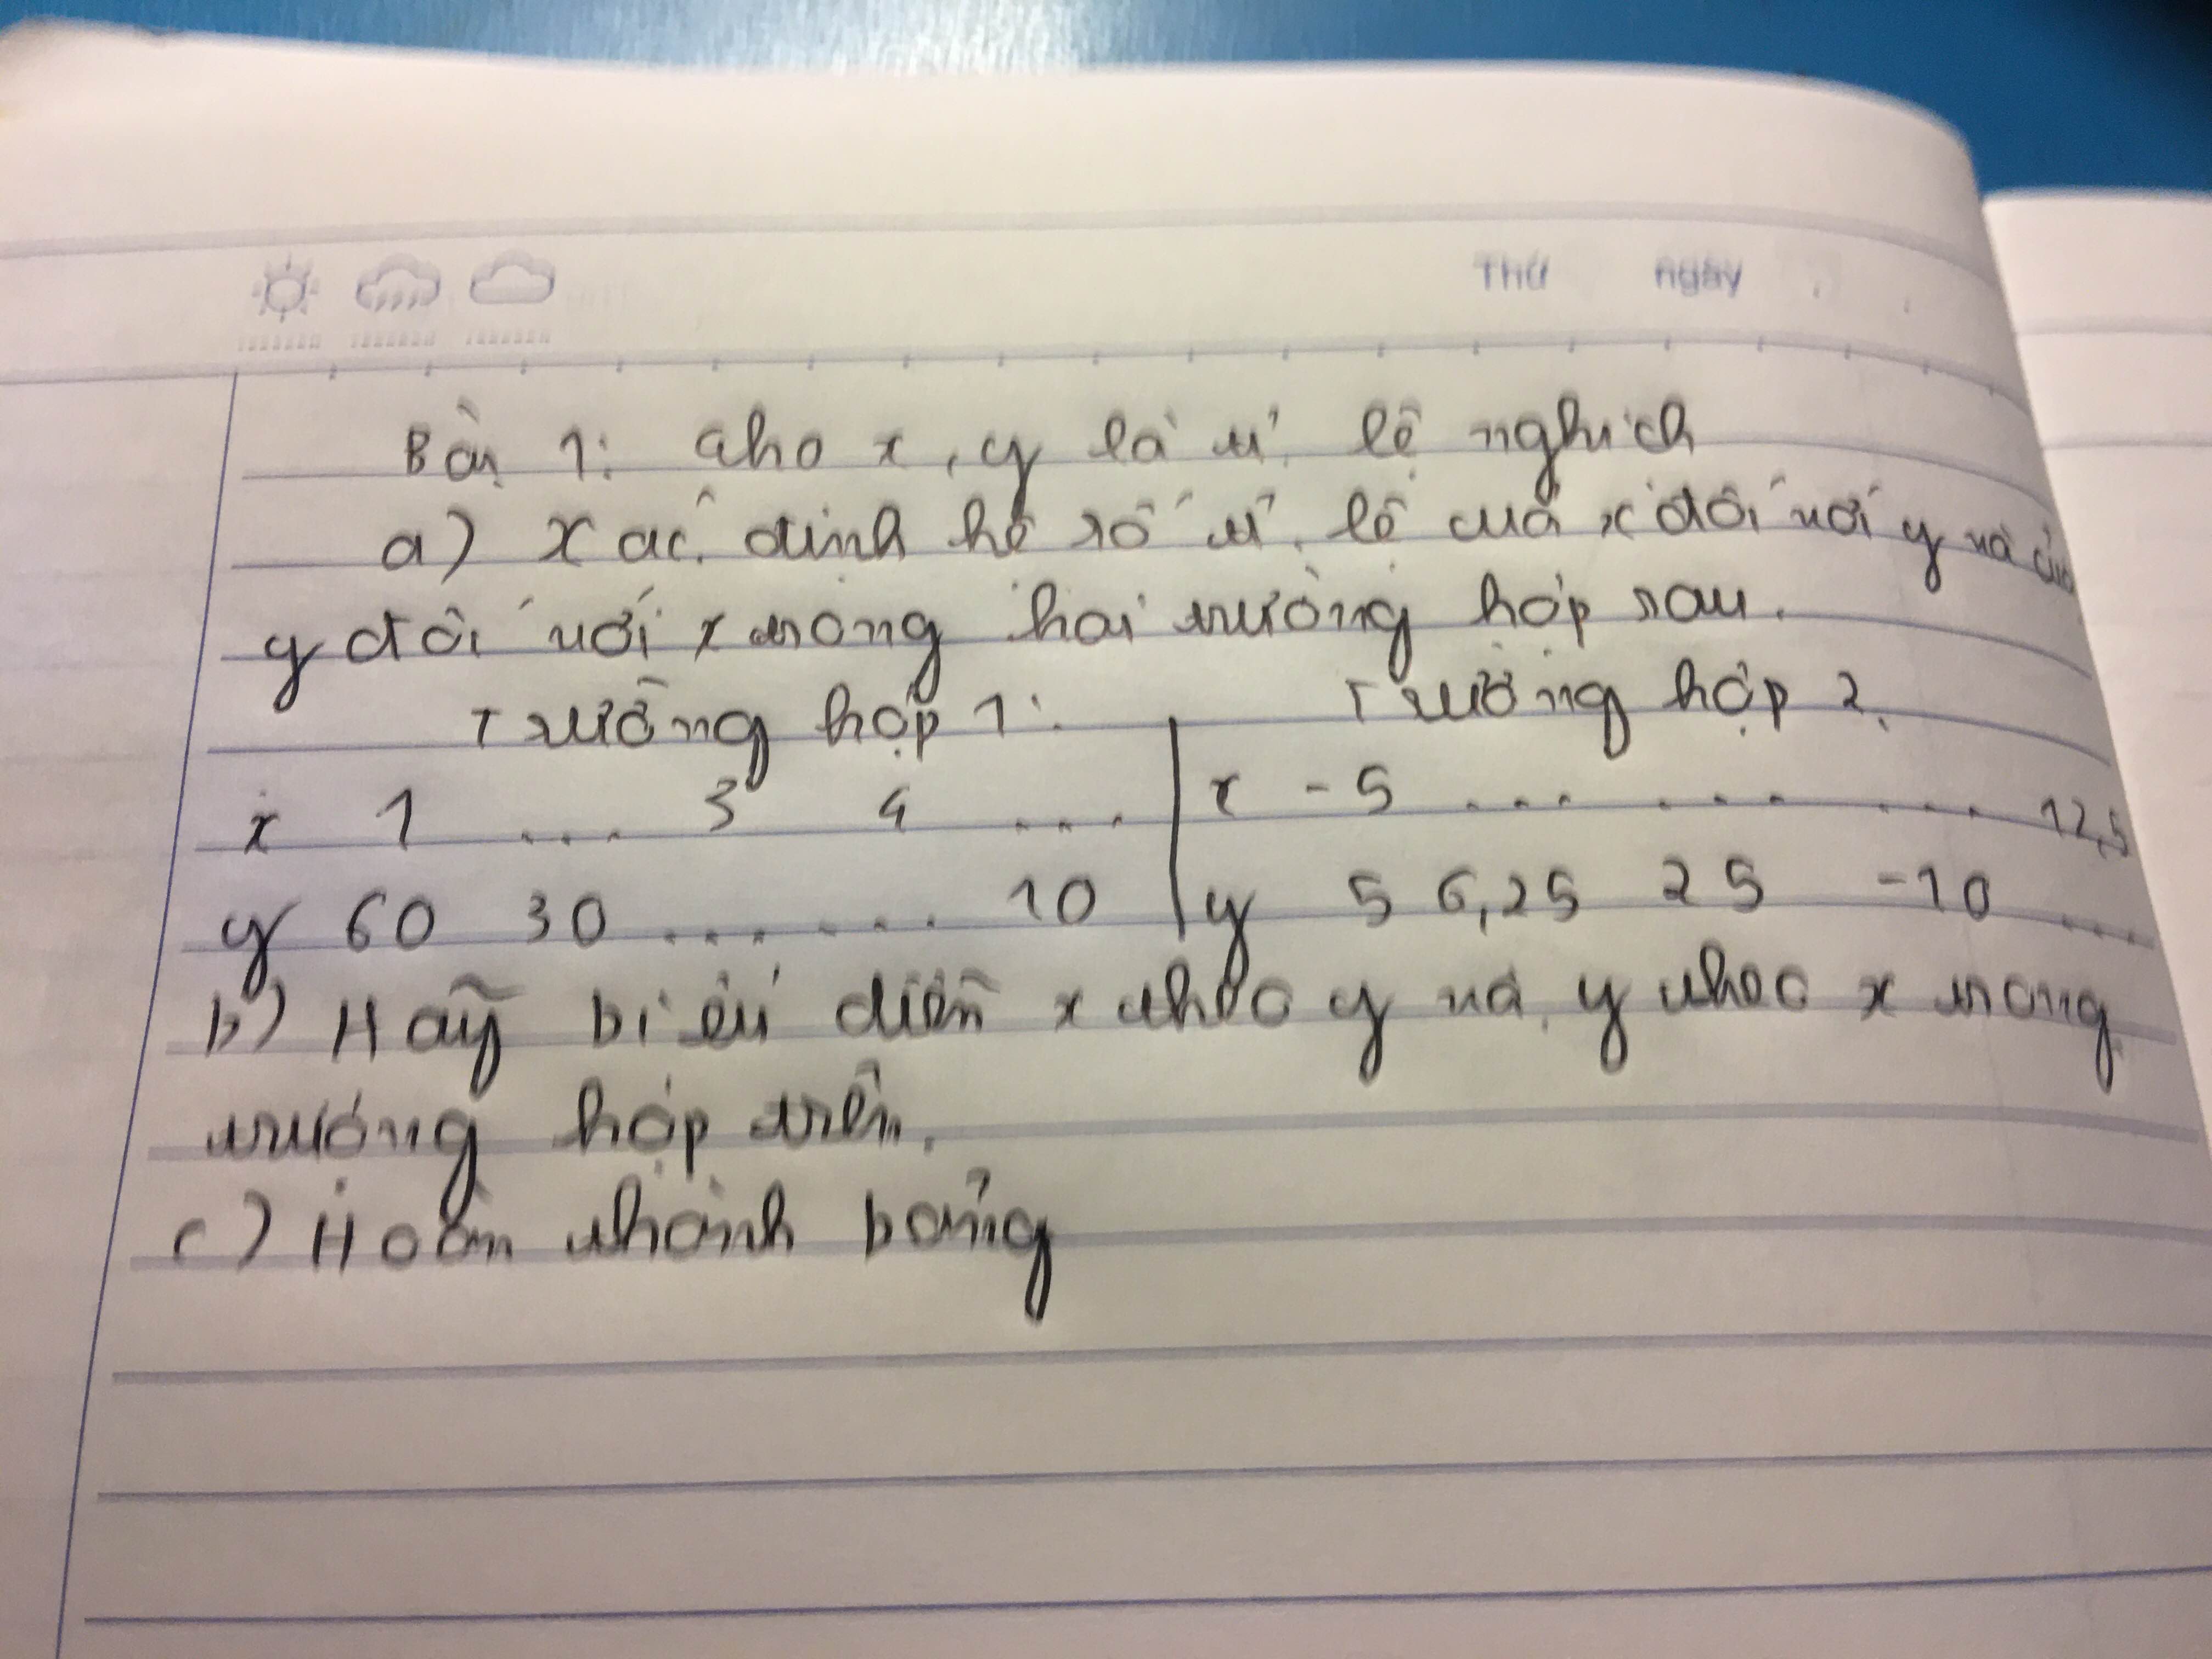 Thứ ngày
Bài 1: Cho x, y là tỉ lệ nghịch
a) Xác định hệ số tỉ lệ của x đối với y và của
y đối với x trong hai trường hợp sau.
Trường hợp 1: Trường hợp 2.
x 1 ... 3 4 ... x -5 ... ... ... 12,5
y 60 30 ... ... 10 y 5 6,25 25 -10 ...
b) Hãy biểu diễn x theo y và y theo x trong
trường hợp trên.
c) Hoàn thành bảng